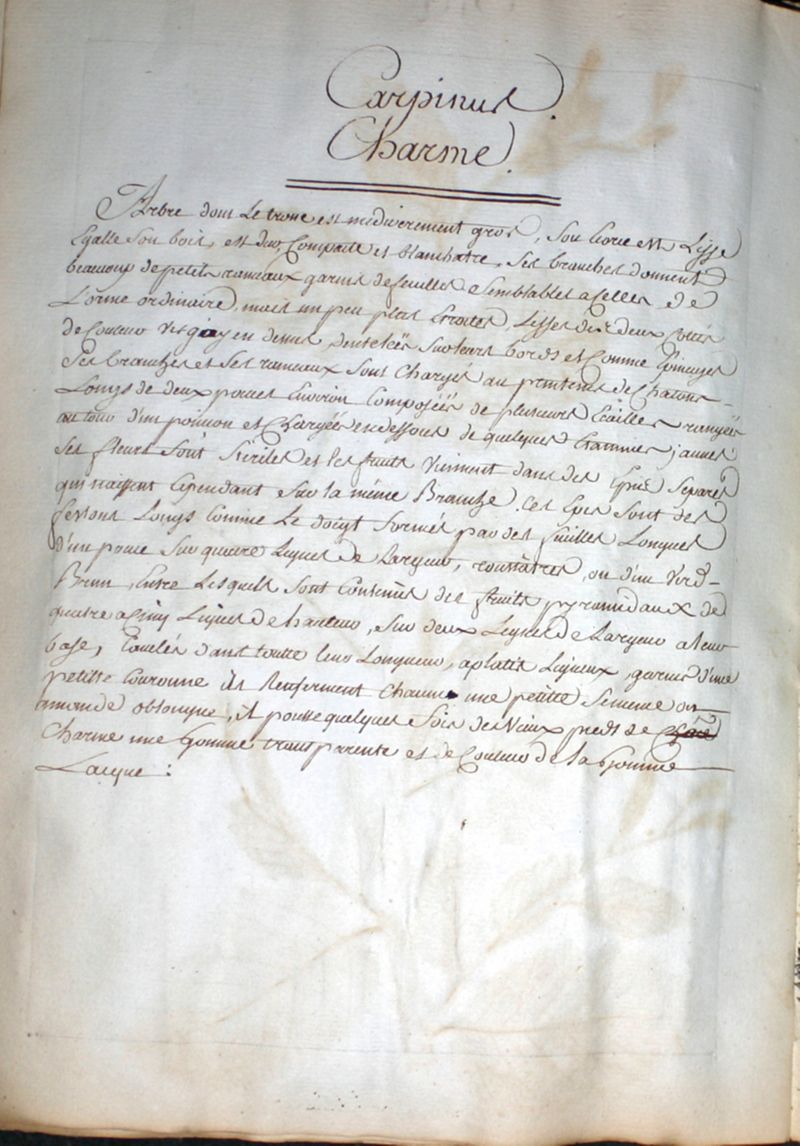 Carpinus.
Charme.
Arbre dont Le tronc est mediocrement gros, Son Ecorce est Lisse
Egalle Son bois, est dur, Compacte et blanchatre, Ses branches donnent
beaucoup de petits rameaux garnis de feuilles Semblables a Celles de
L'orme ordinaire, mais un peu plus Etroites, Lisses des deux Cottés
de Couleur vert gay en dessus, dentelées Sur leurs bords et Comme
Ses branches et Ses rameaux Sont Chargés au printems de Chatons
Longs de deux pouces Environ Composées de plusieurs Ecailles rangées
autour d'un poinçon et Chargées en dessous de quelques Etamines jaunes
Ses fleurs Sont Steriles et les fruits viennent dans des Epics Separés
qui naissent Cependant Sur la même Branche. Ces Epics Sont des
festons Longs Comme Le doigt formés par des feuilles Longues
d'un pouce Sur quatre Lignes de Largeur, roussatres, ou d'un Verd-
Brun, Entre Lesquels Sont Contenus des fruits pyramidaux de
quatre a Cinq Lignes de hauteur, Sur deux Lignes de Largeur a leur
base, Canelés dans toutte leur Longueur, aplatis Ligneux, garnis d'une
petitte Couronne ils Renferment Chacun une petitte Semence ou
amande oblongue, il pousse quelques fois des vieux pieds de
Charme une Gomme transparente et de Couleur de la Gomme
Lacque :